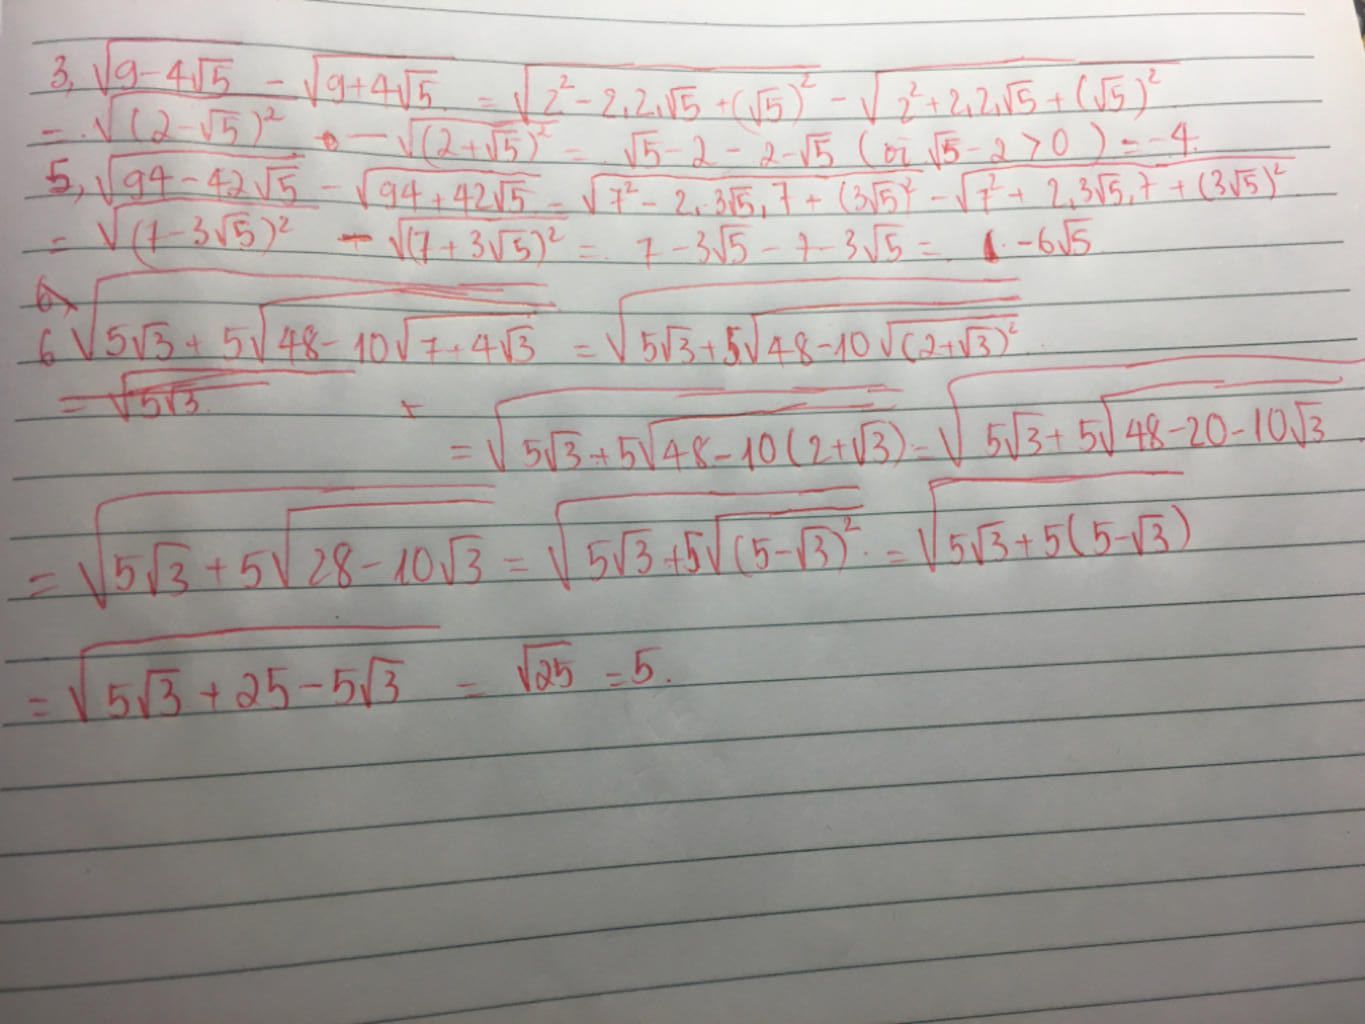 3, √(9-4√5) - √(9+4√5) = √(2²-2.2.√5+(√5)²) - √(2²+2.2.√5+(√5)²)
= √((2-√5)²) - √((2+√5)²) = √5-2-2-√5 (vì √5-2>0) = -4.
5, √(94-42√5) - √(94+42√5) = √(7²-2.3√5.7+(3√5)²) - √(7²+2.3√5.7+(3√5)²)
= √((7-3√5)²) - √((7+3√5)²) = 7-3√5-7-3√5 = -6√5
6 √(5√3+5√(48-10√(7+4√3))) = √(5√3+5√(48-10√((2+√3)²)))
= √(5√3
= √(5√3+5√(48-10(2+√3))) = √(5√3+5√(48-20-10√3))
= √(5√3+5√(28-10√3)) = √(5√3+5√((5-√3)²)) = √(5√3+5(5-√3))
= √(5√3+25-5√3) = √25 = 5.